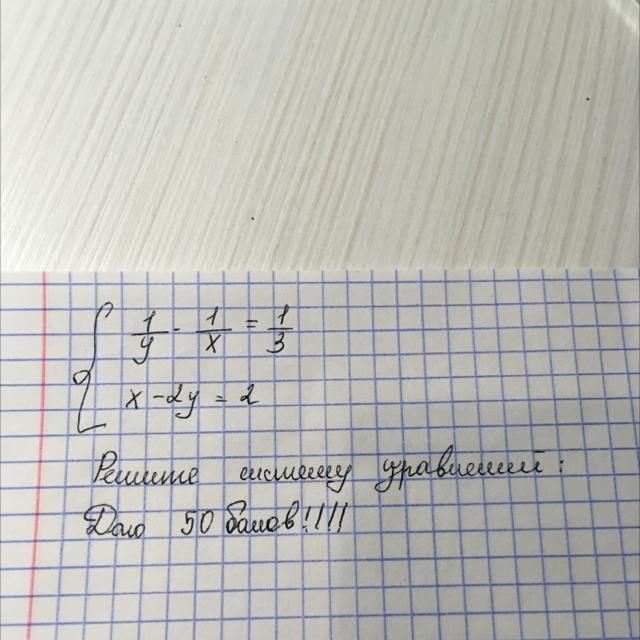 1/y - 1/x = 1/3
x - 2y = 2
Решите систему уравнений:
Даю 50 балов!!!!